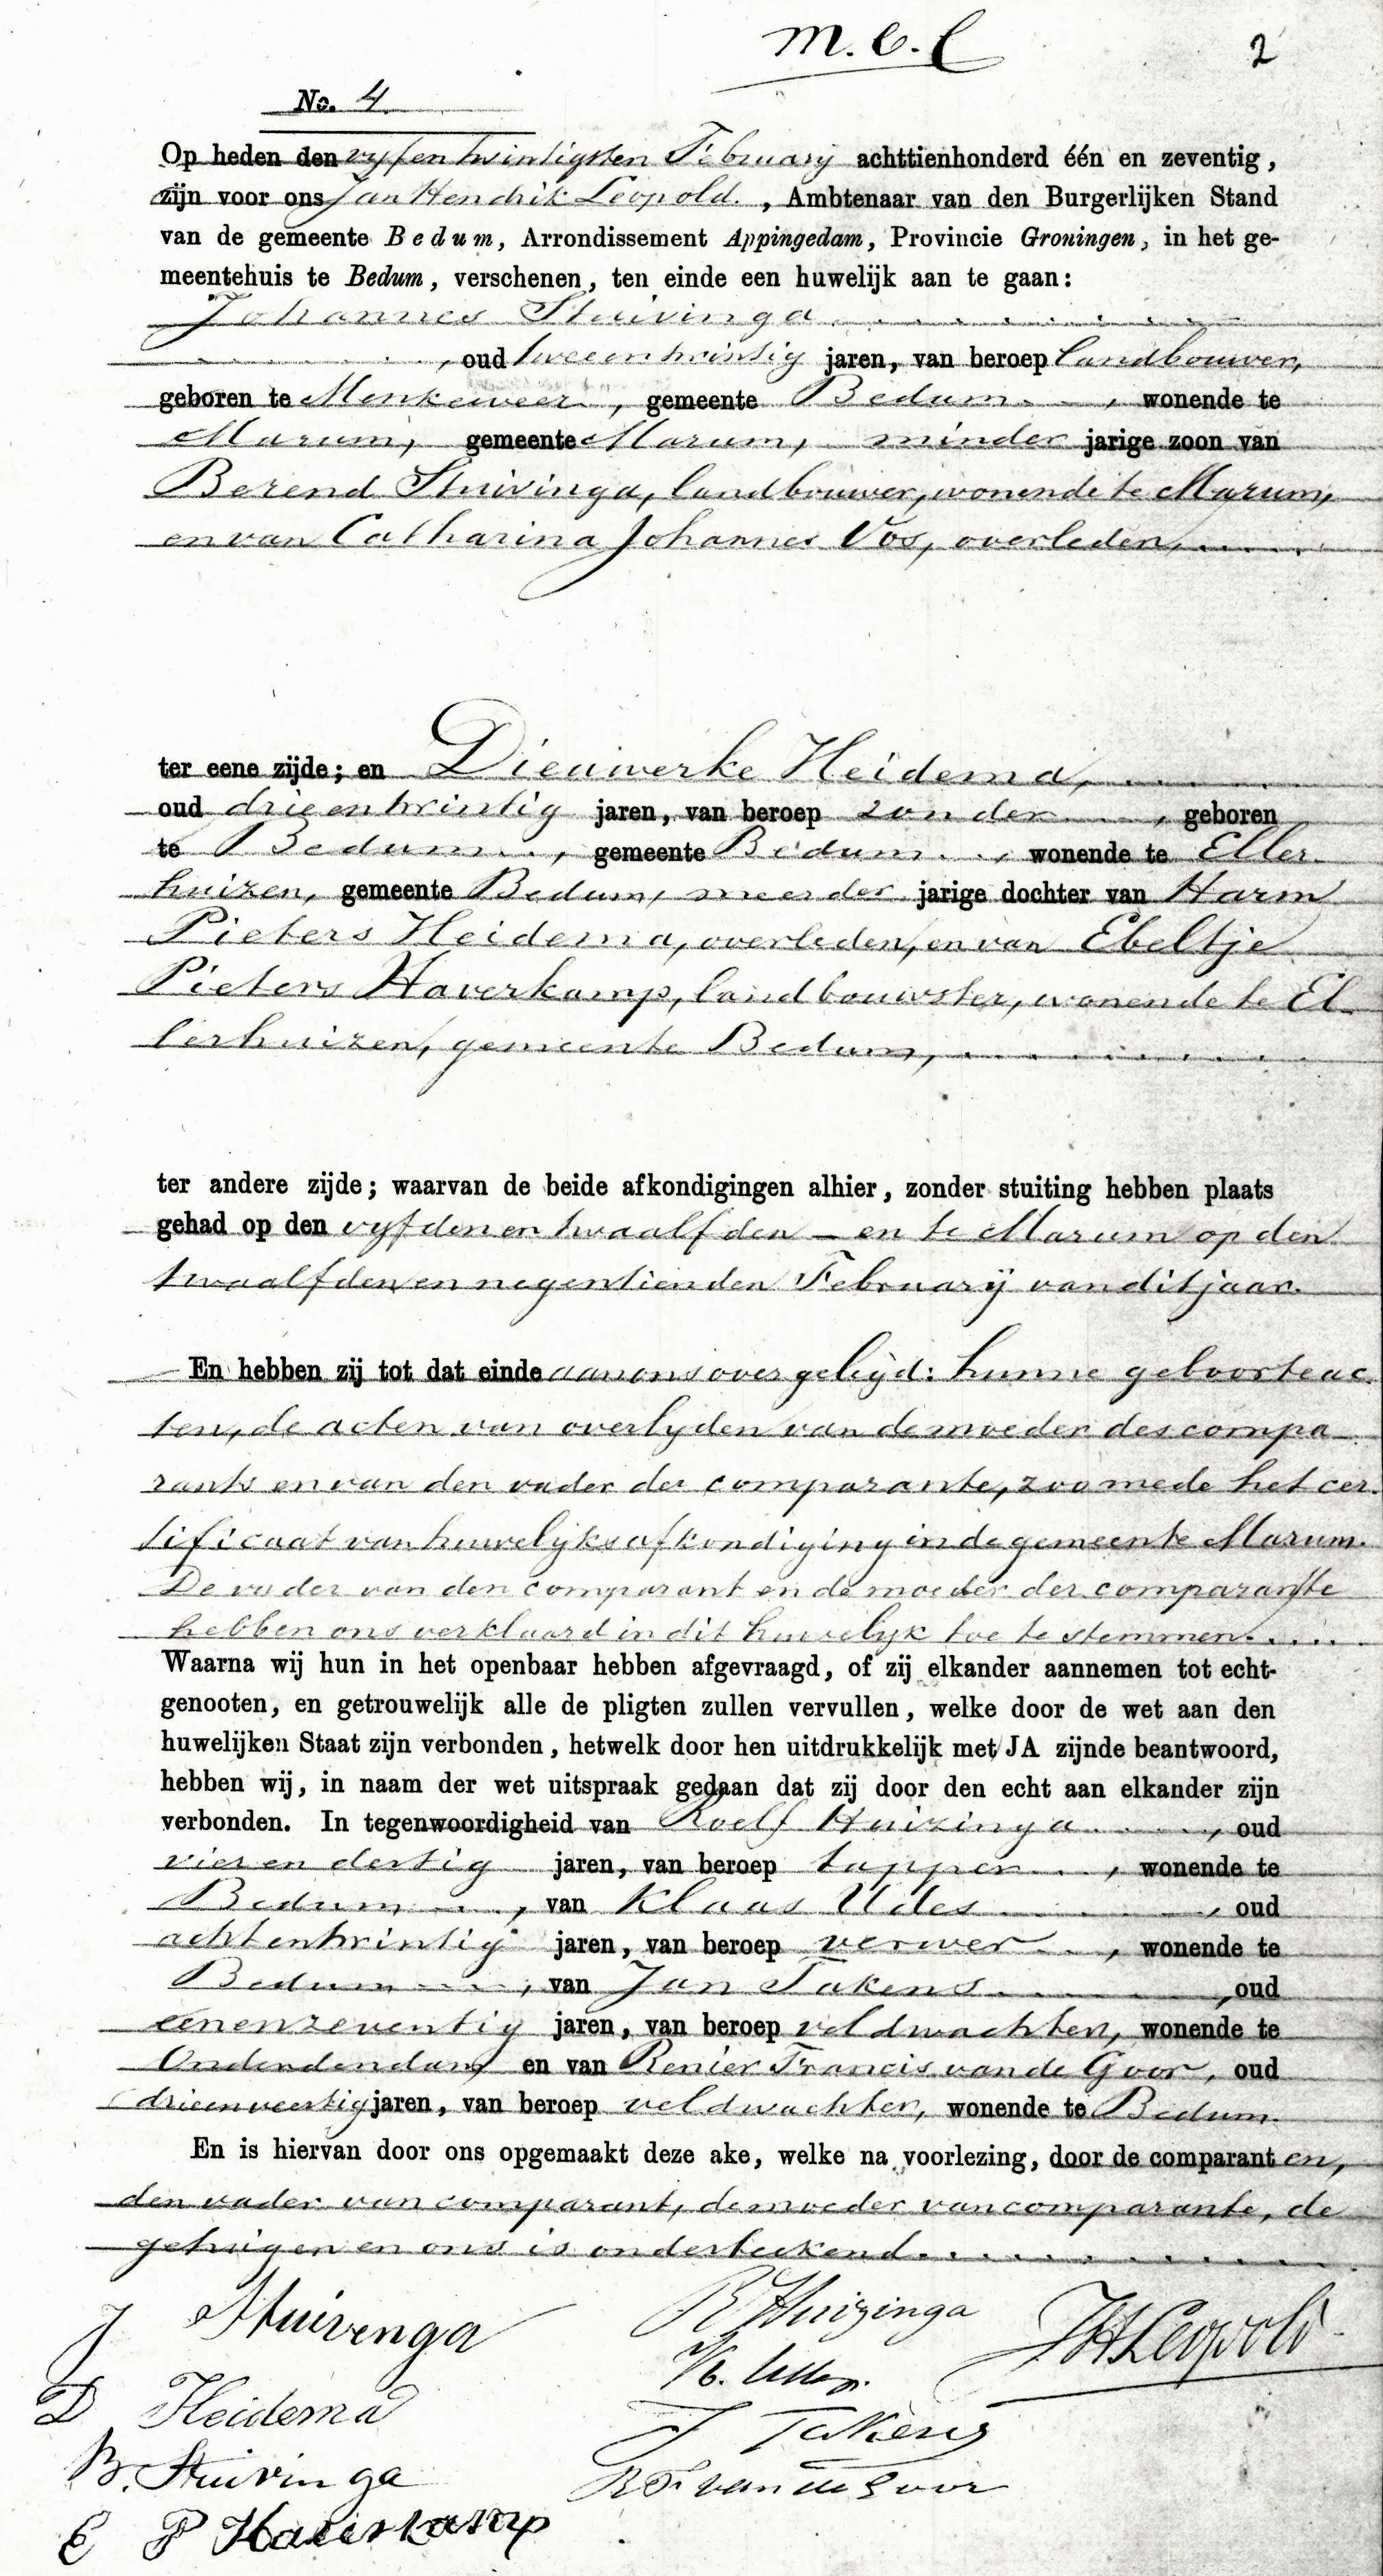 M. C. C
2
No. 4
Op heden den vyfentwintigsten February achttienhonderd één en zeventig,
zijn voor ons Jan Hendrik Leopold., Ambtenaar van den Burgerlijken Stand
van de gemeente Bedum, Arrondissement Appingedam, Provincie Groningen, in het ge-
meentehuis te Bedum, verschenen, ten einde een huwelijk aan te gaan:
Johannes Stuivinga
, oud tweeentwintig jaren, van beroep landbouwer,
geboren te Menkeweer, gemeente Bedum, wonende te
Marum, gemeente Marum, minder jarige zoon van
Berend Stuivinga, landbouwer, wonende te Marum,
en van Catharina Johannes Vos, overleden,
ter eene zijde; en Dieuwerke Heidema,
oud drieentwintig jaren, van beroep zonder, geboren
te Bedum, gemeente Bedum, wonende te Eller
huizen, gemeente Bedum, meerder jarige dochter van Harm
Pieters Heidema, overleden, en van Ebeltje
Pieters Haverkamp, landbouwster, wonende te El-
lerhuizen, gemeente Bedum,
ter andere zijde; waarvan de beide afkondigingen alhier, zonder stuiting hebben plaats
gehad op den vyfden en twaalfden – en te Marum op den
twaalfden en negentienden Februarij van dit jaar.
En hebben zij tot dat einde aan ons overgelegd: hunne geboorteac
ten, de acten van overlyden van de moeder des compa-
rants en van den vader der comparante, zoomede het cer-
tificaat van huwelijksafkondiging in de gemeente Marum.
De vader van den comparant en de moeder der comparante
hebben ons verklaard in dit huwelijk toe te stemmen.
Waarna wij hun in het openbaar hebben afgevraagd, of zij elkander aannemen tot echt-
genooten, en getrouwelijk alle de pligten zullen vervullen, welke door de wet aan den
huwelijken Staat zijn verbonden, hetwelk door hen uitdrukkelijk met JA zijnde beantwoord,
hebben wij, in naam der wet uitspraak gedaan dat zij door den echt aan elkander zijn
verbonden. In tegenwoordigheid van Roelf Huizinga, oud
vier en dertig jaren, van beroep tapper, wonende te
Bedum, van Klaas Udes, oud
achtentwintig jaren, van beroep verwer, wonende te
Bedum, van Jan Takens, oud
eenenzeventig jaren, van beroep veldwachter, wonende te
Onderdendam en van Renier Francis van de Goor, oud
drieenveertig jaren, van beroep veldwachter, wonende te Bedum.
En is hiervan door ons opgemaakt deze ake, welke na voorlezing, door de comparant en,
den vader van comparant, de moeder van comparante, de
getuigen en ons is onderteekend.
J Stuivenga
R Huizinga
JHLeopold
D Heidema
J Takens
B. Stuivinga
R F. van de Goor
E P Haverkamp